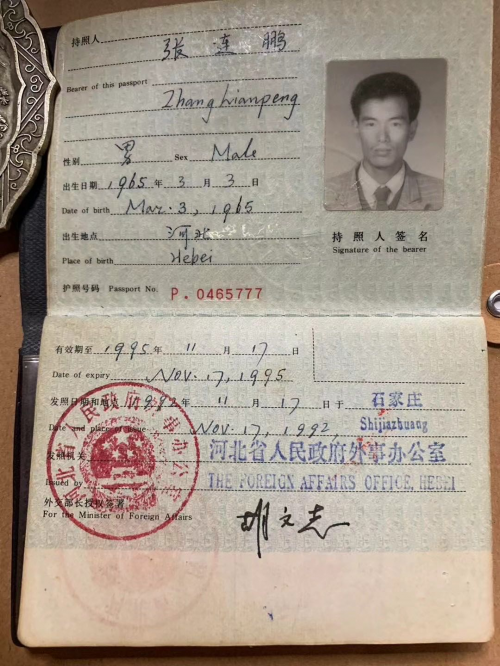 持照人 张连鹏
Bearer of this passport
Zhang Lianpeng
性别 男 Sex Male
出生日期 1965 年 3 月 3 日
Date of birth Mar. 3, 1965
出生地点 河北
Place of birth Hebei
持照人签名
Signature of the bearer
护照号码 Passport No. P. 0465777
有效期至 1995 年 11 月 17 日
Date of expiry Nov. 17, 1995
发照日期和地点 1992 年 11 月 17 日于 石家庄
Shijiazhuang
Date and place of issue Nov. 17, 1992
发照机关 河北省人民政府外事办公室
Issued by THE FOREIGN AFFAIRS OFFICE, HEBEI
外交部长授权签署
For the Minister of Foreign Affairs
胡文志
河北省人民政府外事办公室